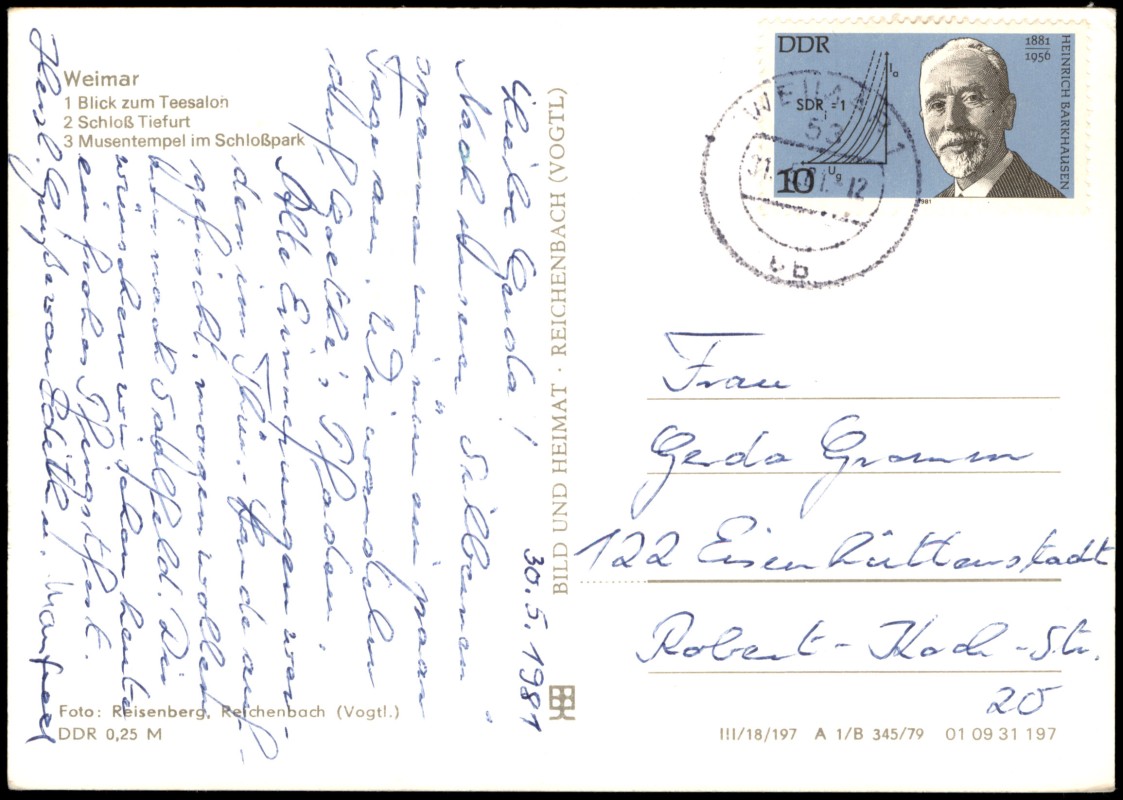 Weimar
1 Blick zum Teesalon
2 Schloß Tiefurt
3 Musentempel im Schloßpark
30.5.1981
Liebe Gerda!
Nach unserer Silbernen
spannen wir nun ein paar
Tage aus. Wir wandeln
auf Goethe's Pfaden.
Alte Erinnerungen wer-
den im Thür.-Lande auf-
gefrischt, morgen wollen
wir nach Saalfeld. Dir
wünschen wir schon heute
ein frohes Pfingstfest.
Herzl. Grüße von Edith u. Manfred
Foto: Reisenberg, Reichenbach (Vogtl.)
DDR 0,25 M
BILD UND HEIMAT · REICHENBACH (VOGTL)
DDR
SDR = 1
Ia
Ug
10
1881
1956
HEINRICH BARKHAUSEN
1981
WEIMAR 1
53
-12
Frau
Gerda Gramm
122 Eisenhüttenstadt
Robert-Koch-Str.
20
III/18/197 A 1/B 345/79 01 09 31 197